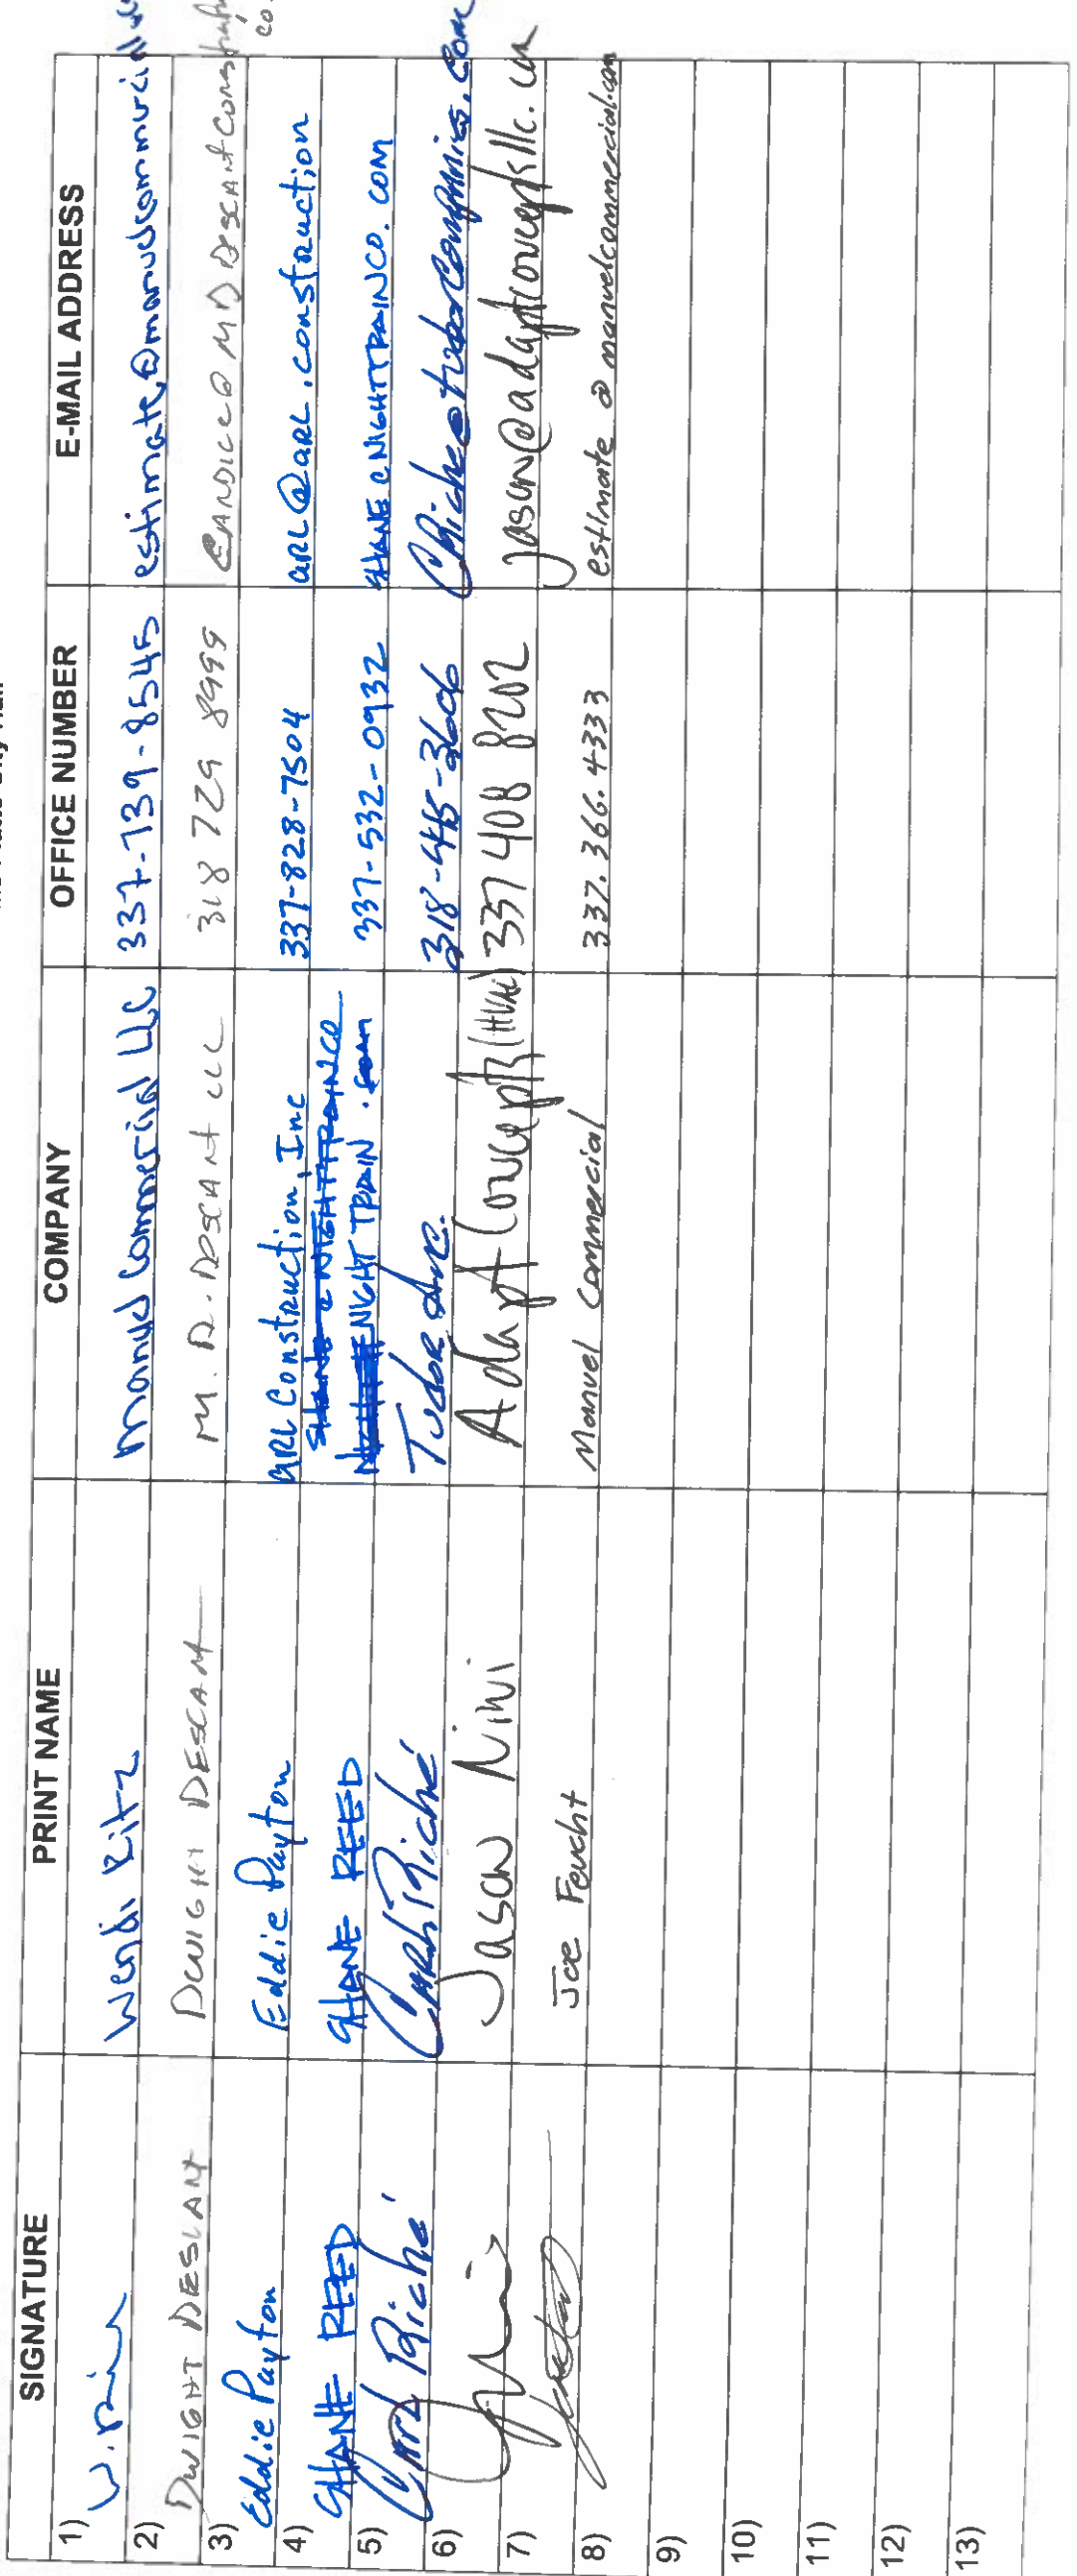 SIGNATURE PRINT NAME COMPANY OFFICE NUMBER E-MAIL ADDRESS
1) W. Wendi Ritz Manuel Commercial LLC 337-739-8545 estimate@manuelcommercial
2) DWIGHT DESCANT DWIGHT DESCANT M. D. DESCANT LLC 318 729 8999 CANDICE@MDDESCANTCONST
co
3) Eddie Payton Eddie Payton ARL Construction, Inc 337-828-7504 ARL@ARL.construction
4) SHANE REED SHANE REED NIGHT TRAIN 337-532-0932 SHANE@NIGHTTRAINCO.COM
5) Carl Riché Carl Riché Tudor Inc. 318-445-3606 CRiche@tudorcompanies.com
6) Jason Nini Adapt Concepts (HVAC) 337 408 8202 jason@adaptconceptsllc.com
7) Joe Feucht Manuel Commercial 337.366.4333 estimate@manuelcommercial.com
8)
9)
10)
11)
12)
13)